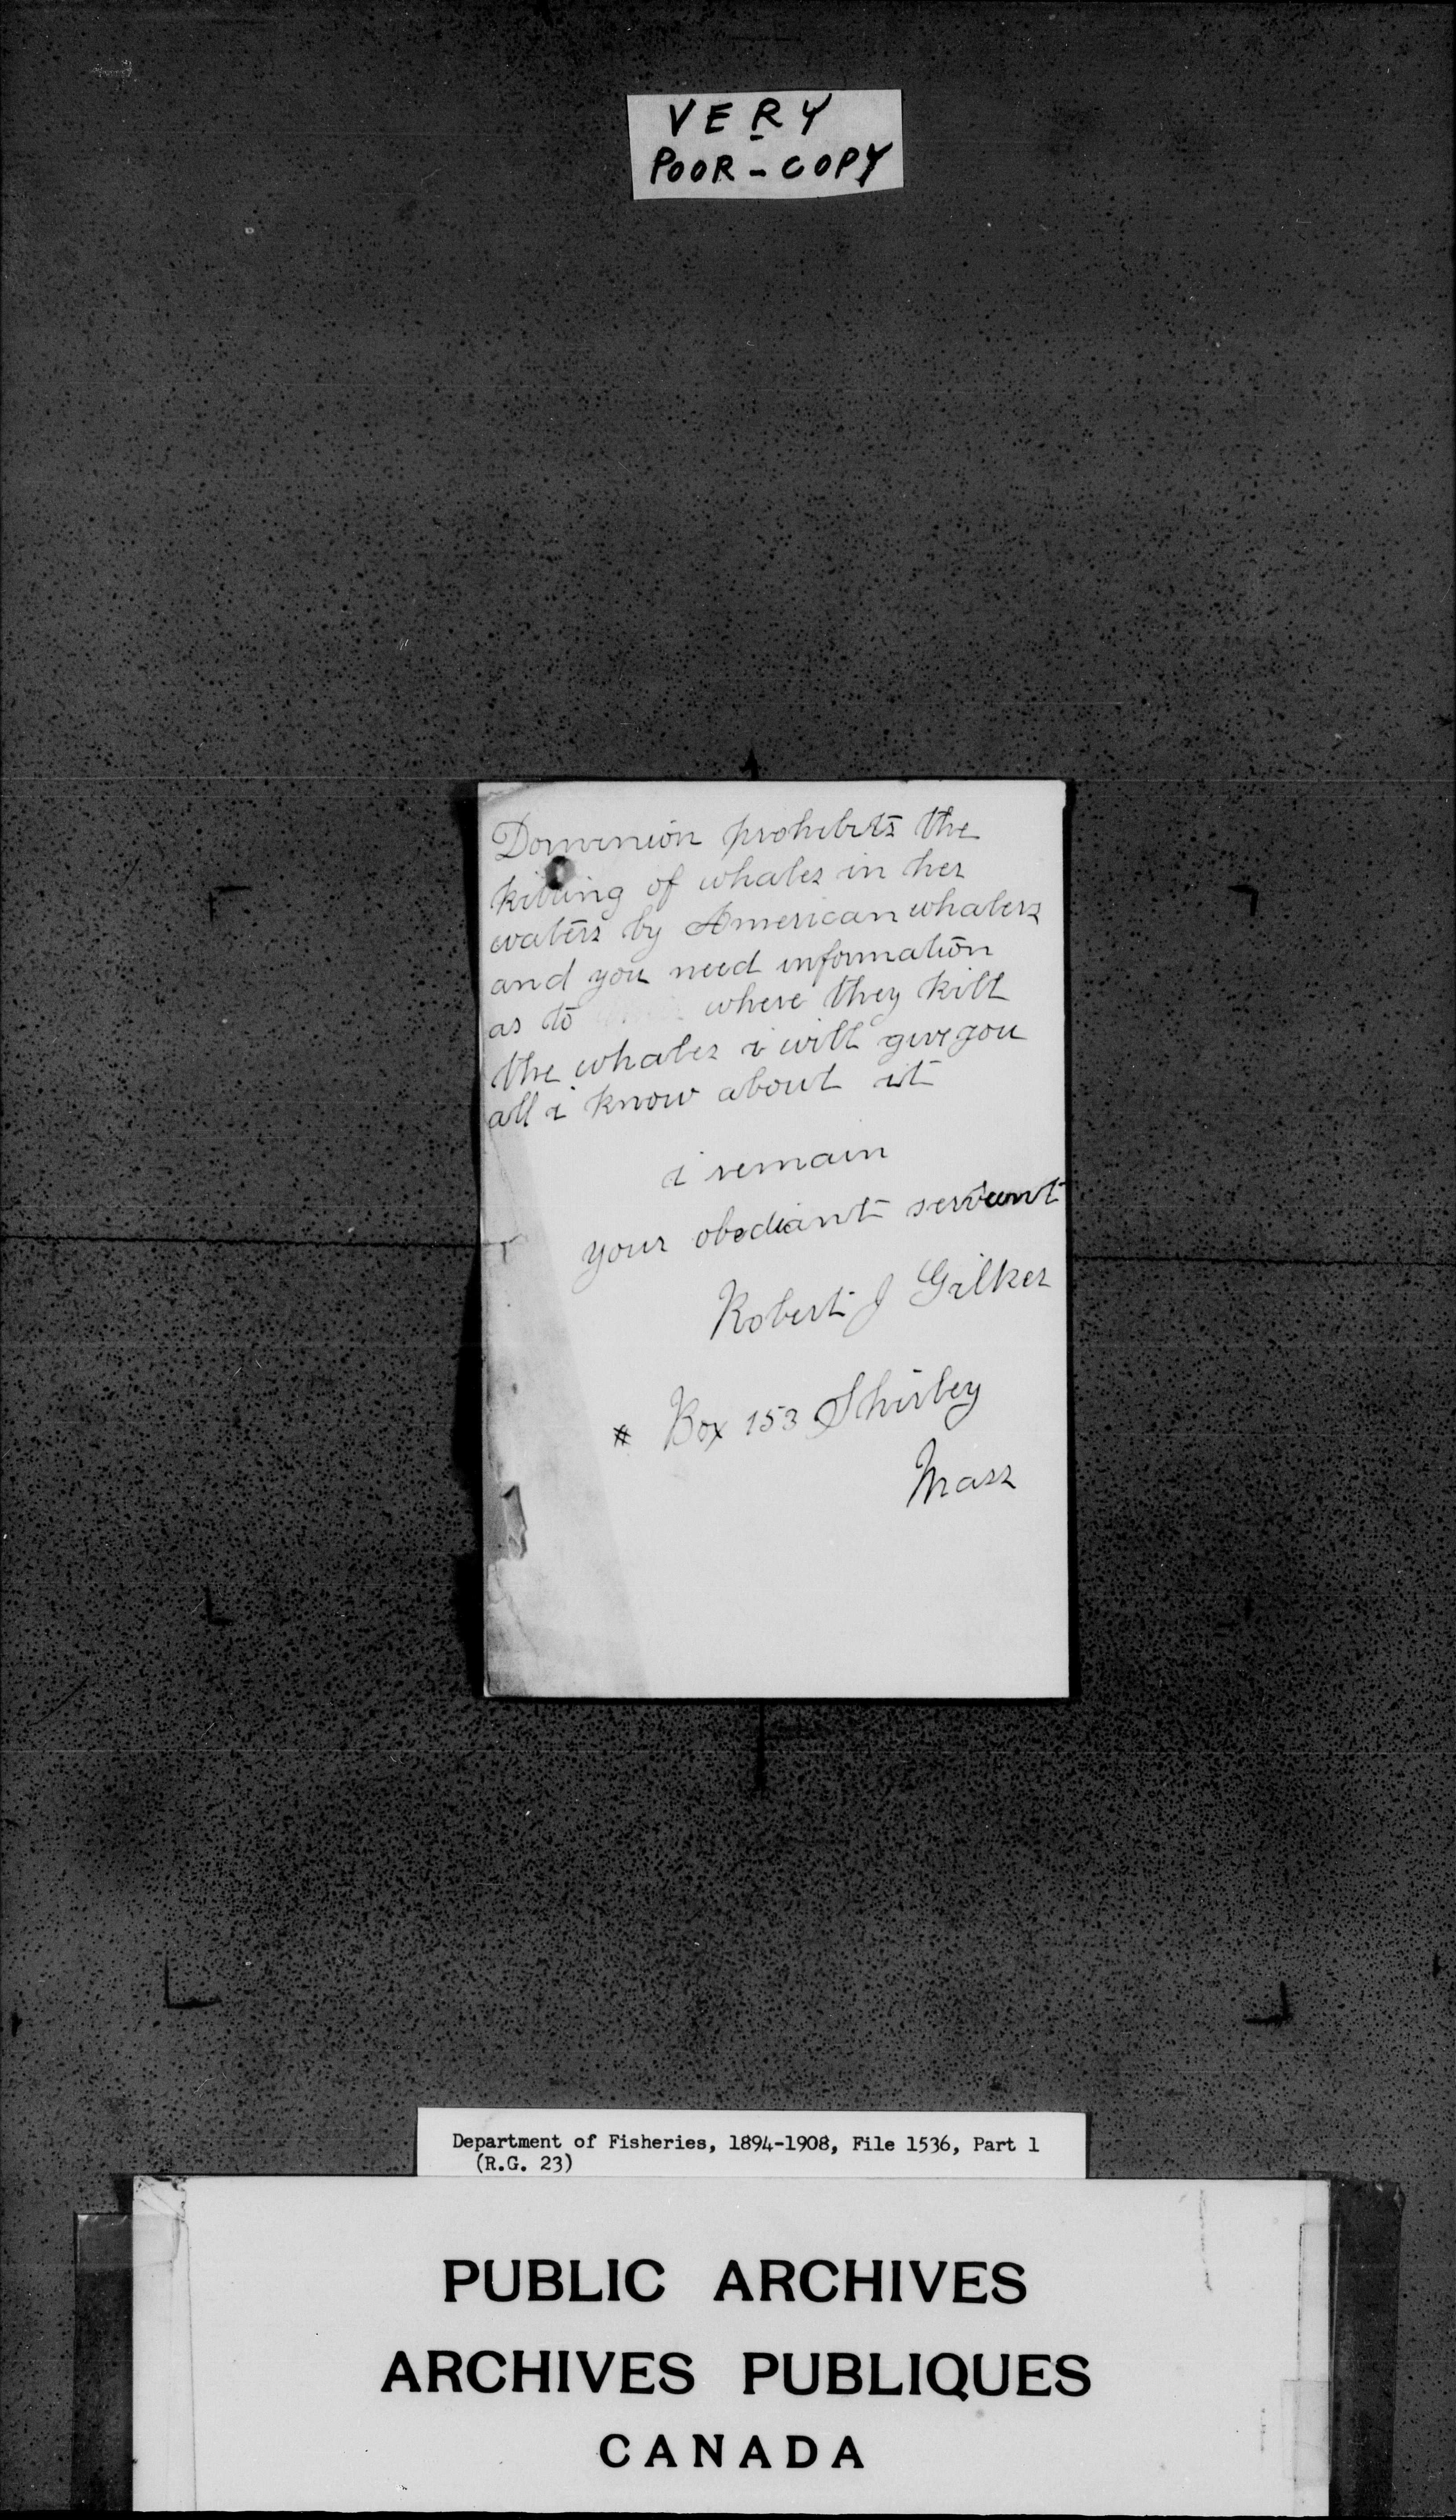 VERY
POOR - COPY
Dominion prohibits the
killing of whales in her
waters by American whalers
and you need information
as to where they kill
the whales i will give you
all i know about it
i remain
your obediant servant
Robert J Gilkes
# Box 153 Shirley
Mass
Department of Fisheries, 1894-1908, File 1536, Part 1
(R.G. 23)
PUBLIC ARCHIVES
ARCHIVES PUBLIQUES
CANADA